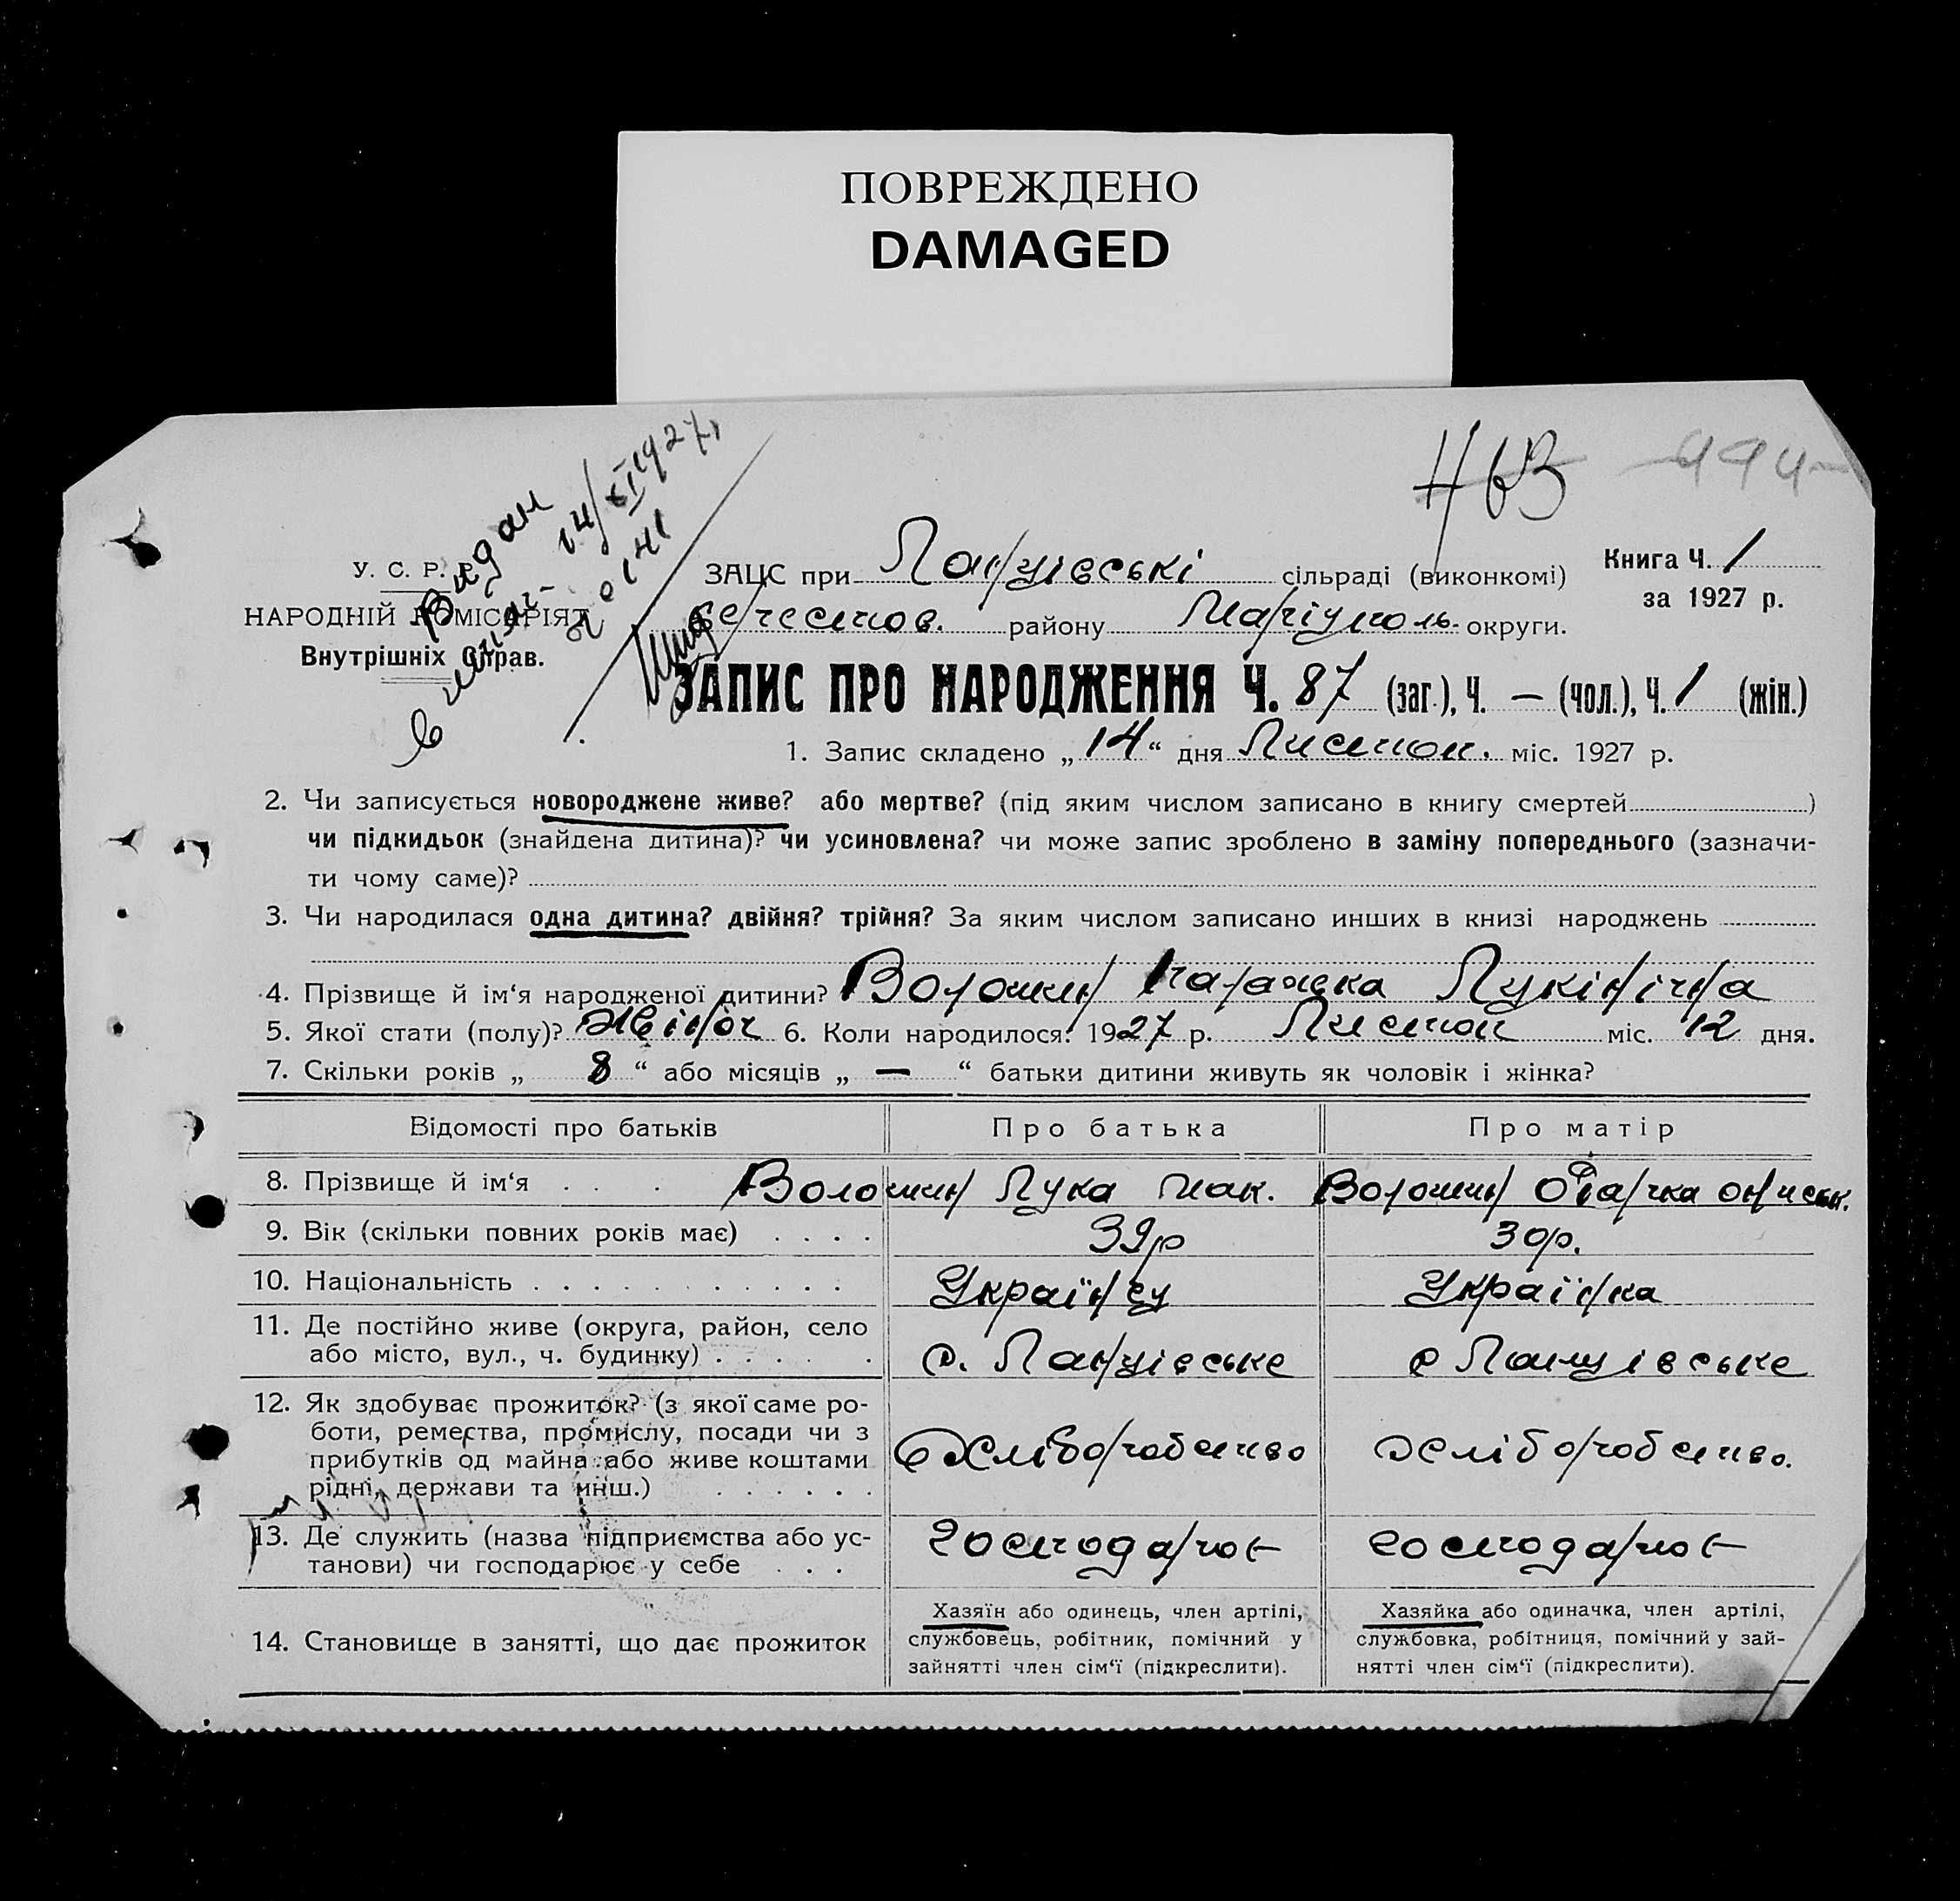 ПОВРЕЖДЕНО
DAMAGED
Видан
14/XI 1927 р
У. С. Р. Р.
НАРОДНІЙ КОМІСАРІЯТ
Внутрішніх Справ.
ЗАЦС при сільраді (виконкомі)
району Маріуполь. округи.
Книга Ч. 1
за 1927 р.
ЗАПИС ПРО НАРОДЖЕННЯ Ч. 87 (заг.), Ч. — (чол.), Ч. 1 (жін.)
1. Запис складено „ 14 “ дня Листоп. міс. 1927 р.
2. Чи записується новороджене живе? або мертве? (під яким числом записано в книгу смертей )
чи підкидьок (знайдена дитина)? чи усиновлена? чи може запис зроблено в заміну попереднього (зазначи-
ти чому саме)?
3. Чи народилася одна дитина? двійня? трійня? За яким числом записано инших в книзі народжень
4. Прізвище й ім‘я народженої дитини? Волошин Параска Лукінічна
5. Якої стати (полу)? Жіноч 6. Коли народилося? 1927 р. Листоп міс. 12 дня.
7. Скільки років „ 8 “ або місяців „ — “ батьки дитини живуть як чоловік і жінка?
Відомості про батьків Про батька Про матір
8. Прізвище й ім‘я . . . Волошин Лука Мак. Волошин Одарка
9. Вік (скільки повних років має) . . . . 39р 30р.
10. Національність . . . . . . . . . . . Українец Українка
11. Де постійно живе (округа, район, село
або місто, вул., ч. будинку) . . . . . . с. Ланцівське с Ланцівське
12. Як здобуває прожиток? (з якої саме ро-
боти, ремества, промислу, посади чи з
прибутків од майна або живе коштами
рідні, держави та инш.) . . . . . . Хліборобство Хліборобство.
13. Де служить (назва підприємства або ус-
танови) чи господарює у себе . . . господарює господарює
14. Становище в занятті, що дає прожиток
Хазяїн або одинець, член артілі,
службовець, робітник, помічний у
зайнятті член сім‘ї (підкреслити).
Хазяйка або одиначка, член артілі,
службовка, робітниця, помічний у зай-
нятті член сім‘ї (підкреслити).